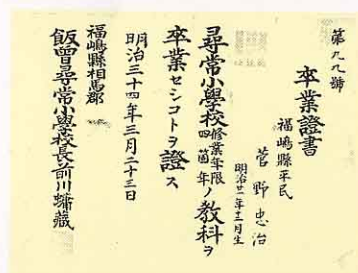 第九九號
卒業證書
福嶋縣平民
菅野忠治
明治廿一年十二月生
尋常小學校修業年限四箇年ノ教科ヲ
卒業セシコトヲ證ス
明治三十四年三月二十三日
福嶋縣相馬郡
飯曾尋常小學校長前川蟰藏